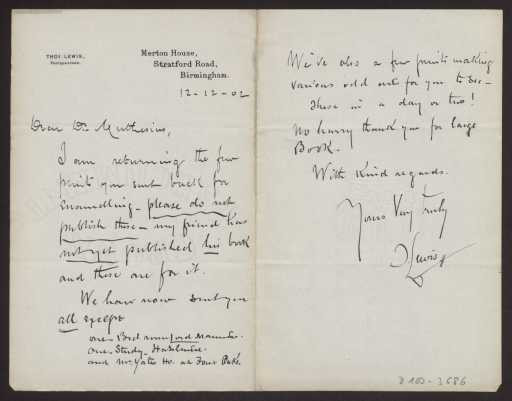 THOS. LEWIS,
Photographer.
Merton House,
Stratford Road,
Birmingham.
12-12-02
Dear Dr. Muthesius,
I am returning the few
prints you sent back for
enamelling - please do not
publish these - my friend has
not yet published his book
and these are for it.
We have now sent you
all except
one Bed room
one Study - Hazelwood.
and Mr Yates Ho. at Four Oaks.
We've also a few prints making
various odd for you to see -
these in a day or two!
No hurry thank you for large
Book.
With kind regards.
Yours Very truly
T Lewis
D 102-3686